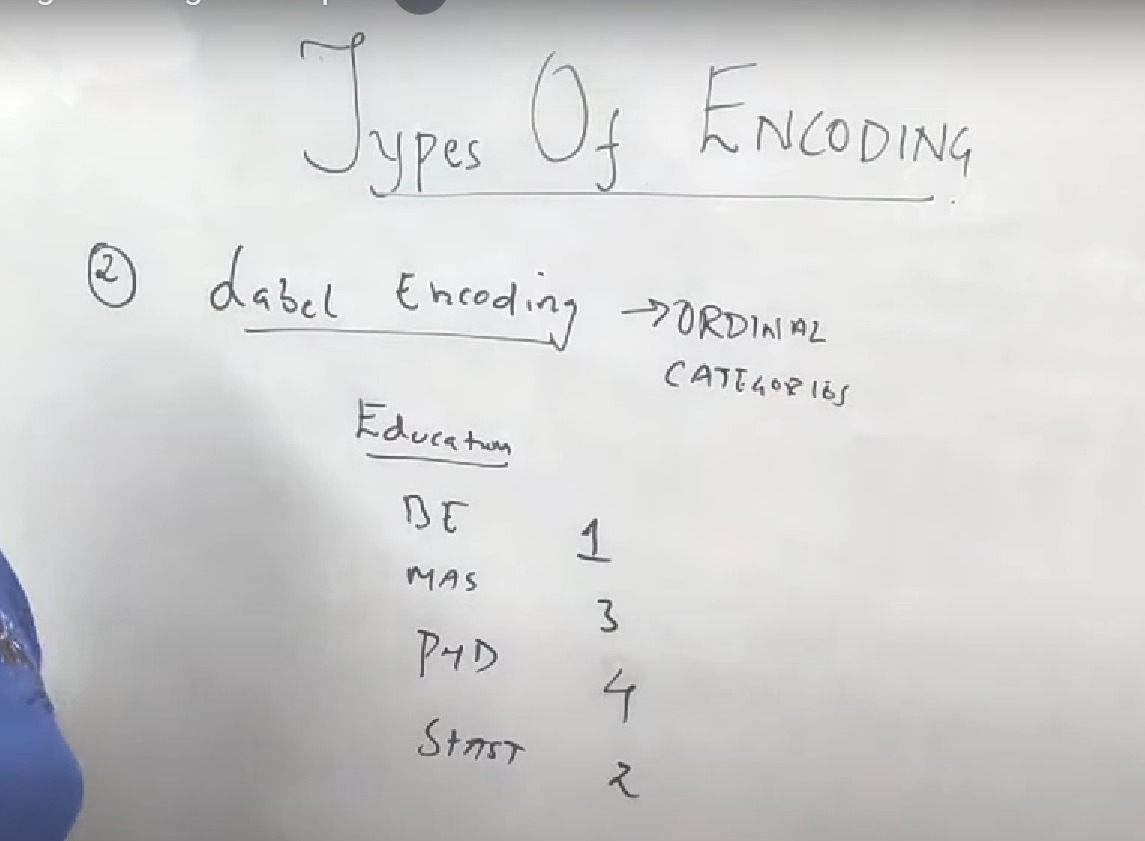 Types Of ENCODING
② Label Encoding → ORDINAL
CATEGORIES
Education
BE 1
MAS 3
PHD 4
2